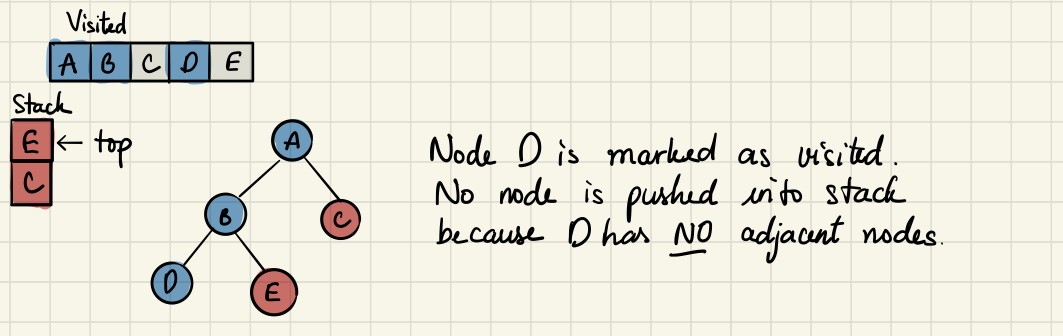 Visited
A B C D E
Stack
E ← top
C
A
B
C
D
E
Node D is marked as visited.
No node is pushed into stack
because D has NO adjacent nodes.